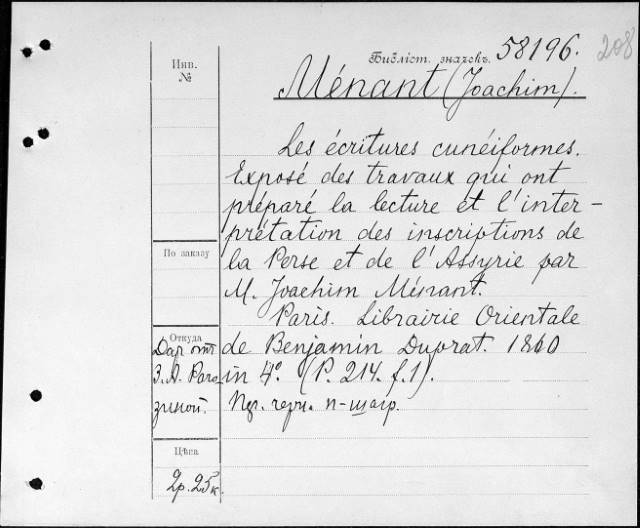 Инв. №
Библіот. значекъ. 58196.
208
Ménant (Joachim).
Les écritures cunéiformes.
Exposé des travaux qui ont
préparé la lecture et l'inter-
prétation des inscriptions de
la Perse et de l'Assyrie par
M. Joachim Ménant.
Paris. Librairie Orientale
de Benjamin Duprat. 1860
in 4°. (P. 214. f. 1).
По заказу
Откуда
Дар отъ
З. А. Раго
зиной.
Цѣна
2р. 25к.